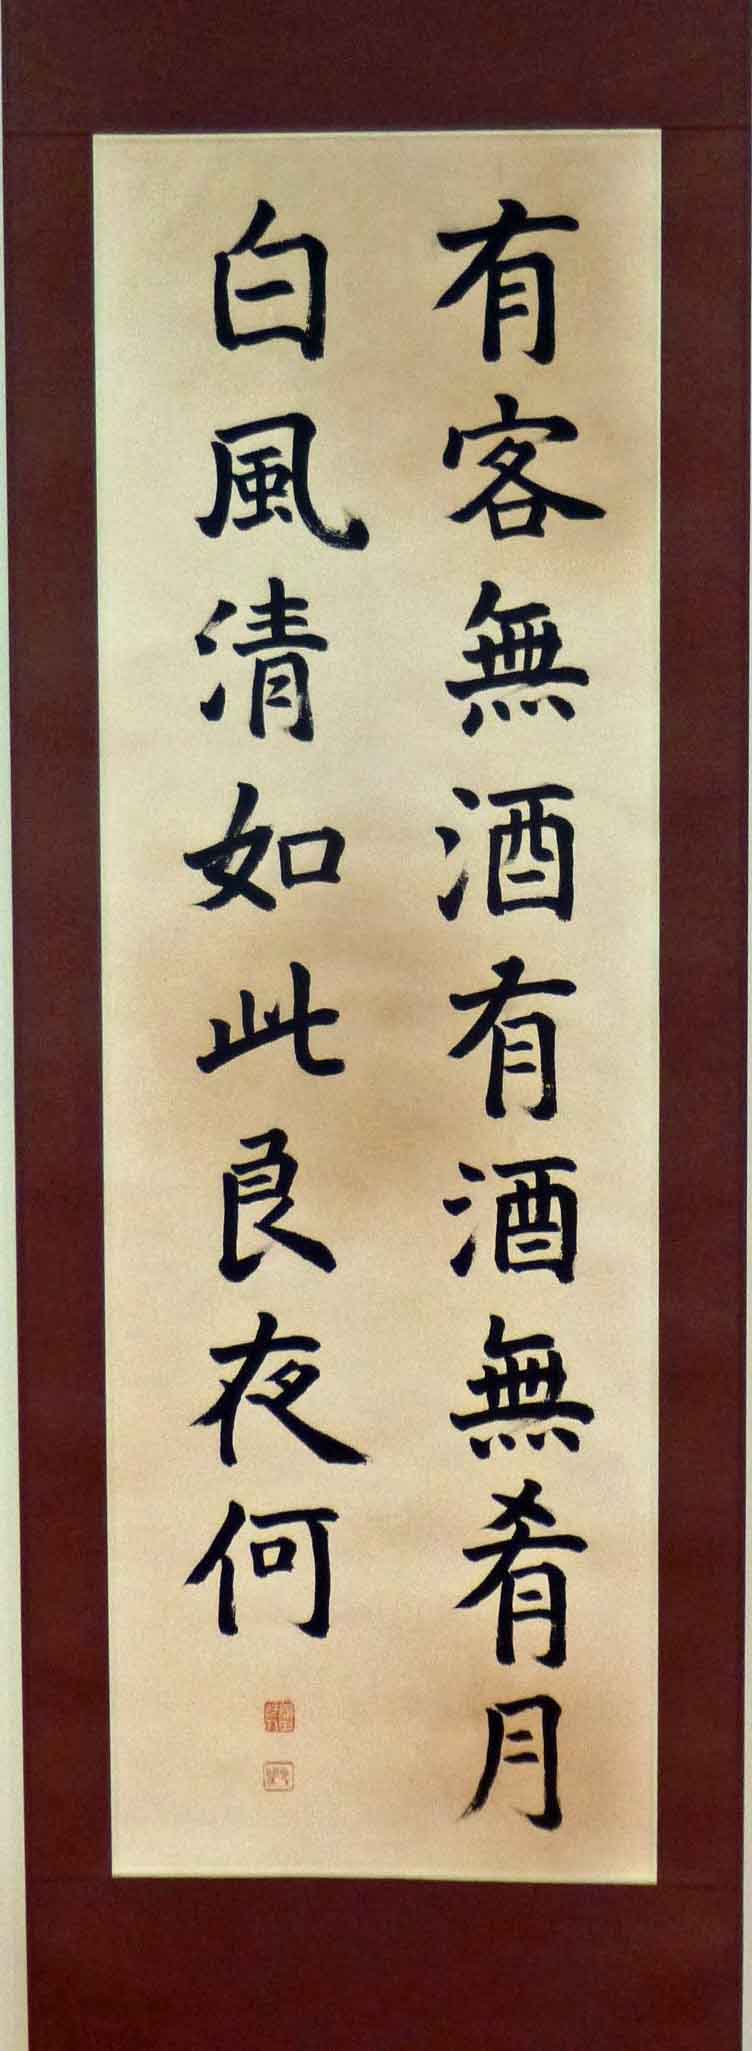 有客無酒有酒無肴月
白風清如此良夜何